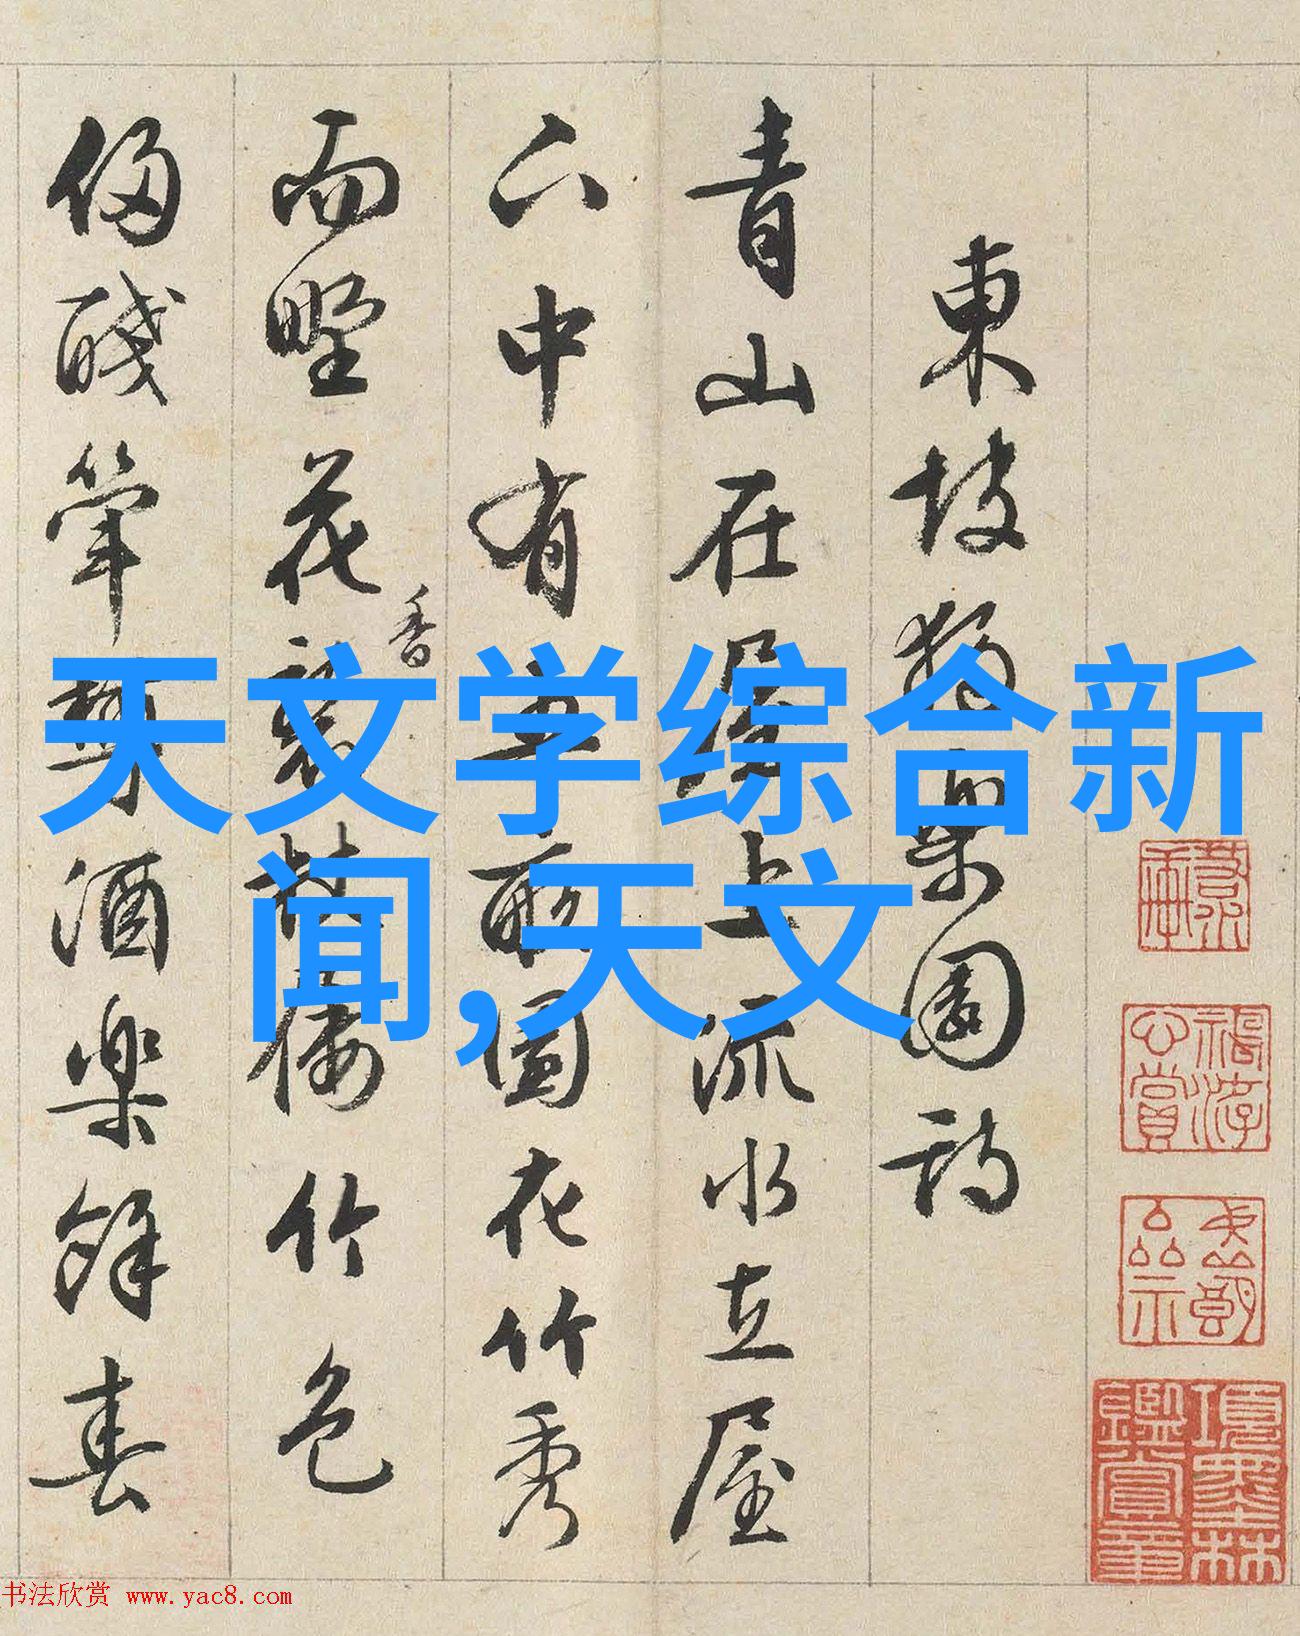 天文学综合新
闻,天文
東坡獨樂園詩
青山在屋上流水在屋
下中有五畝園花竹秀
而野花香襲杖屨竹色
侵醆斝樽酒樂餘春
項墨林鑑賞章
书法欣赏 www.yac8.com